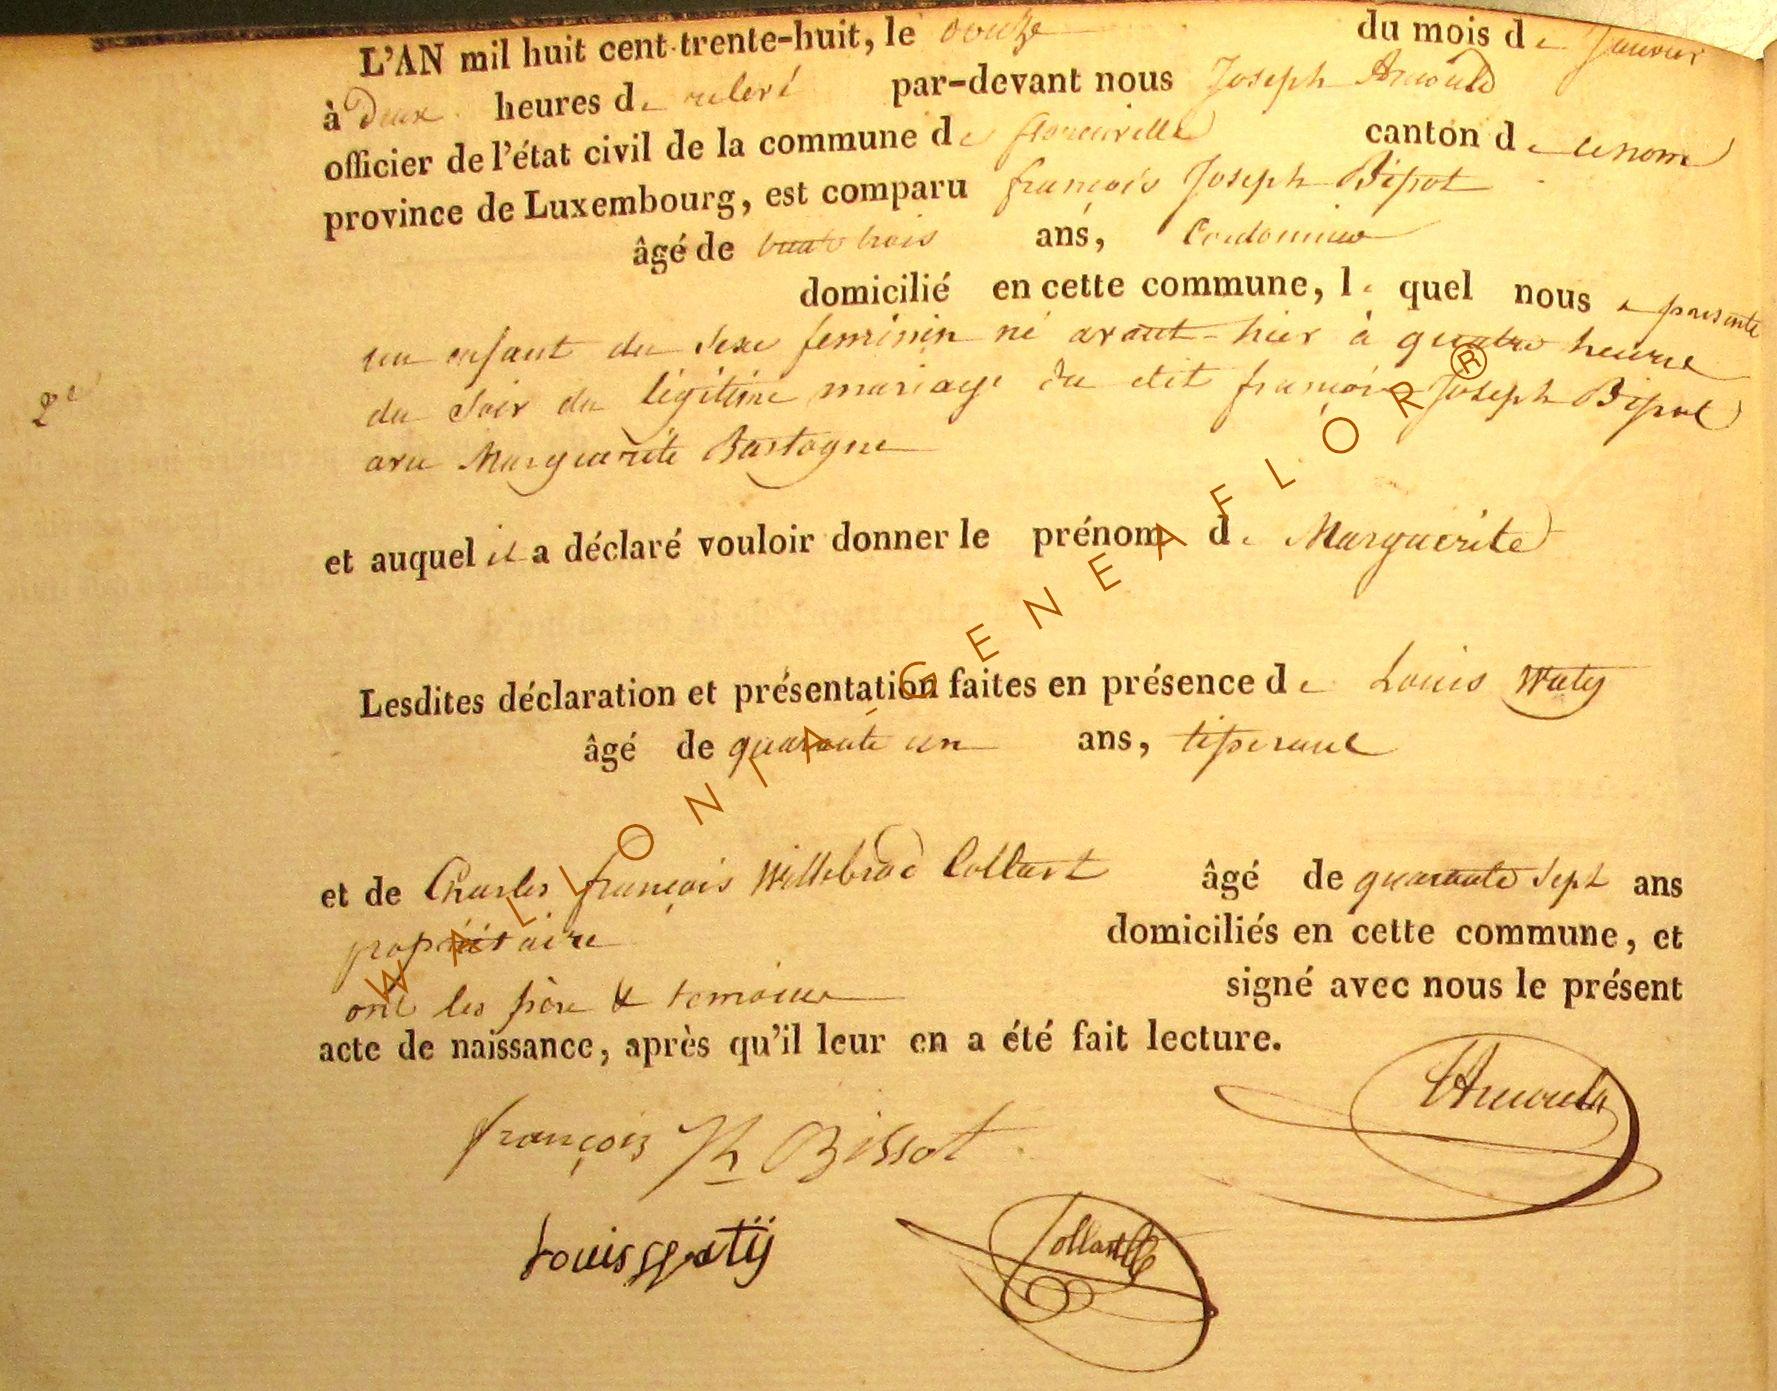 L'AN mil huit cent trente-huit, le onze du mois de Janvier
à Deux heures de relevé par-devant nous Joseph Arnould
officier de l'état civil de la commune de florenville canton de ce nom
province de Luxembourg, est comparu françois Joseph Bissot
âgé de trente trois ans, Cordonnier
domicilié en cette commune, le quel nous a presenté
un enfant du sexe feminin né avant-hier à quatre heures
du soir du légitime mariage du dit françois Joseph Bissot
avec Marguerite Bastogne
2e
et auquel il a déclaré vouloir donner le prénom de Marguerite
Lesdites déclaration et présentation faites en présence de Louis Waty
âgé de quarante un ans, tisserand
et de Charles françois Willebrod Collart âgé de quarante sept ans
propriétaire domiciliés en cette commune, et
ont les père & temoins signé avec nous le présent
acte de naissance, après qu'il leur en a été fait lecture.
JArnould
françois Jh Bissot
Louis Watij
Collart
WALLONIA-GENEAFLOR®